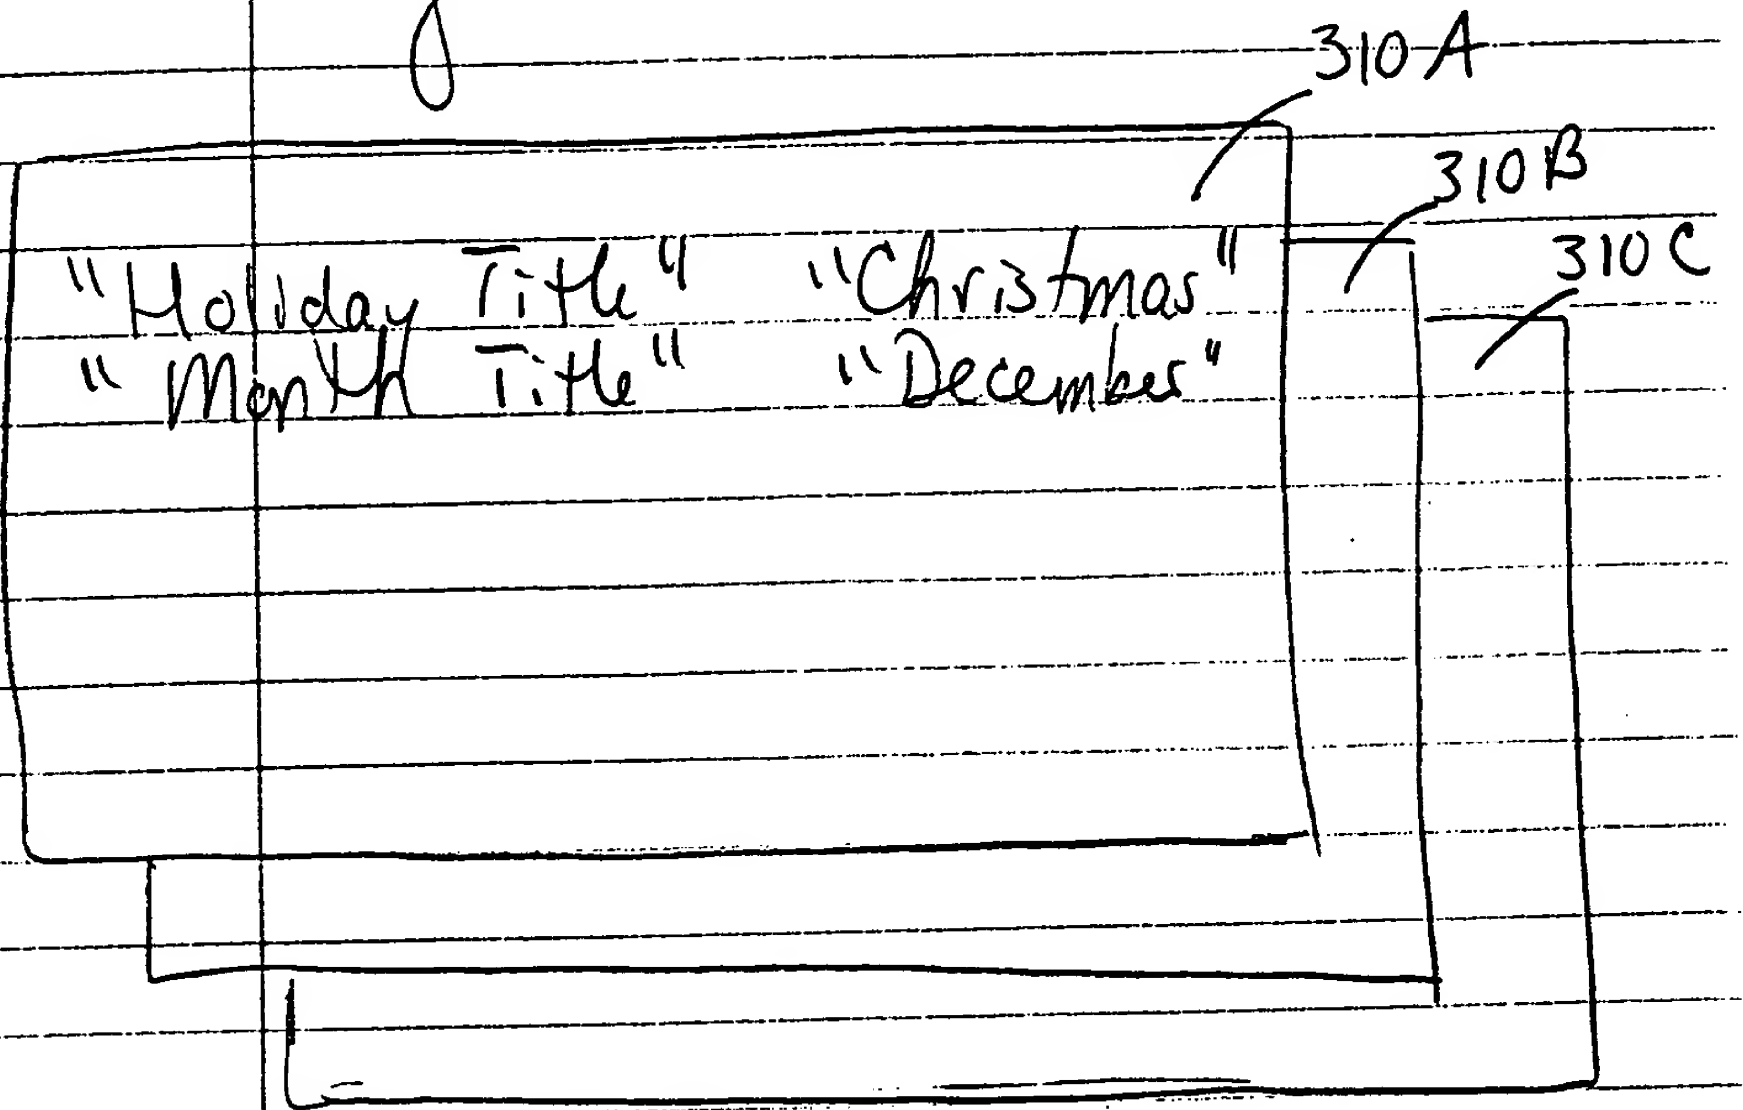 310 A
310 B
310 C
"Holiday Title" "Christmas"
"Month Title" "December"